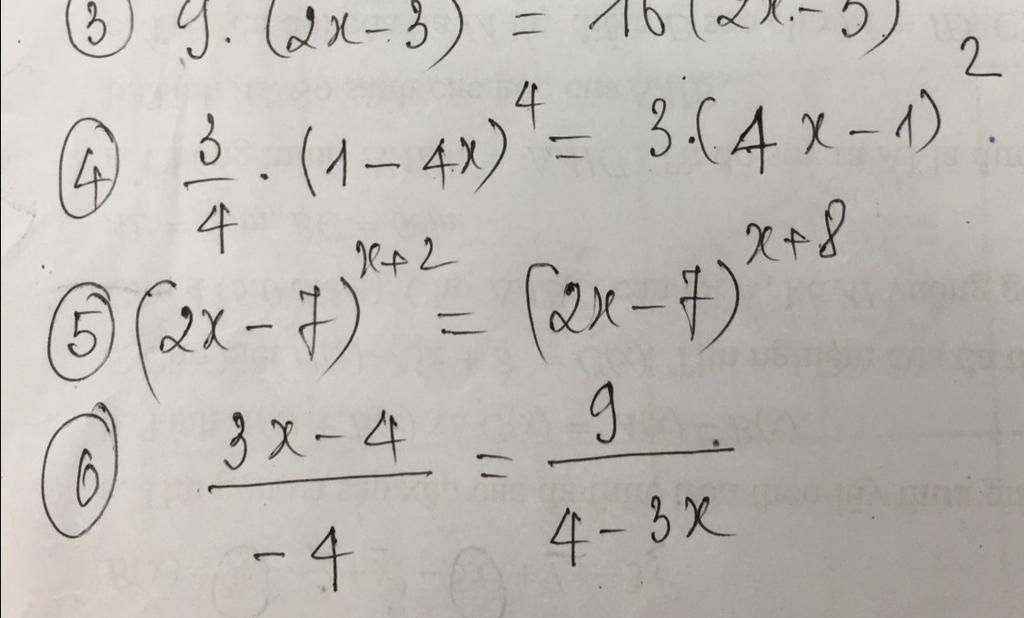 ③ 9. (2x-3) = 16 (2x-5)
④ 3/4 . (1-4x)^4 = 3.(4x-1)^2 .
⑤ (2x-7)^{x+2} = (2x-7)^{x+8}
⑥ (3x-4)/(-4) = 9/(4-3x)